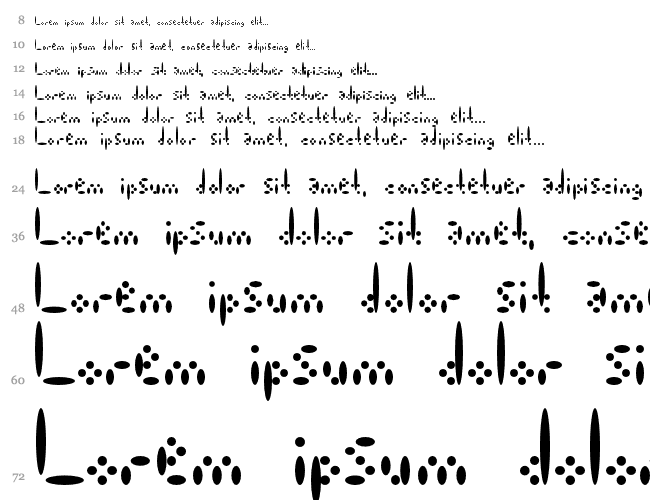 8 Lorem ipsum dolor sit amet, consectetuer adipiscing elit...
10 Lorem ipsum dolor sit amet, consectetuer adipiscing elit...
12 Lorem ipsum dolor sit amet, consectetuer adipiscing elit...
14 Lorem ipsum dolor sit amet, consectetuer adipiscing elit...
16 Lorem ipsum dolor sit amet, consectetuer adipiscing elit...
18 Lorem ipsum dolor sit amet, consectetuer adipiscing elit...
24 Lorem ipsum dolor sit amet, consectetuer adipiscing
36 Lorem ipsum dolor sit amet, conse
48 Lorem ipsum dolor sit am
60 Lorem ipsum dolor si
72 Lorem ipsum dolo